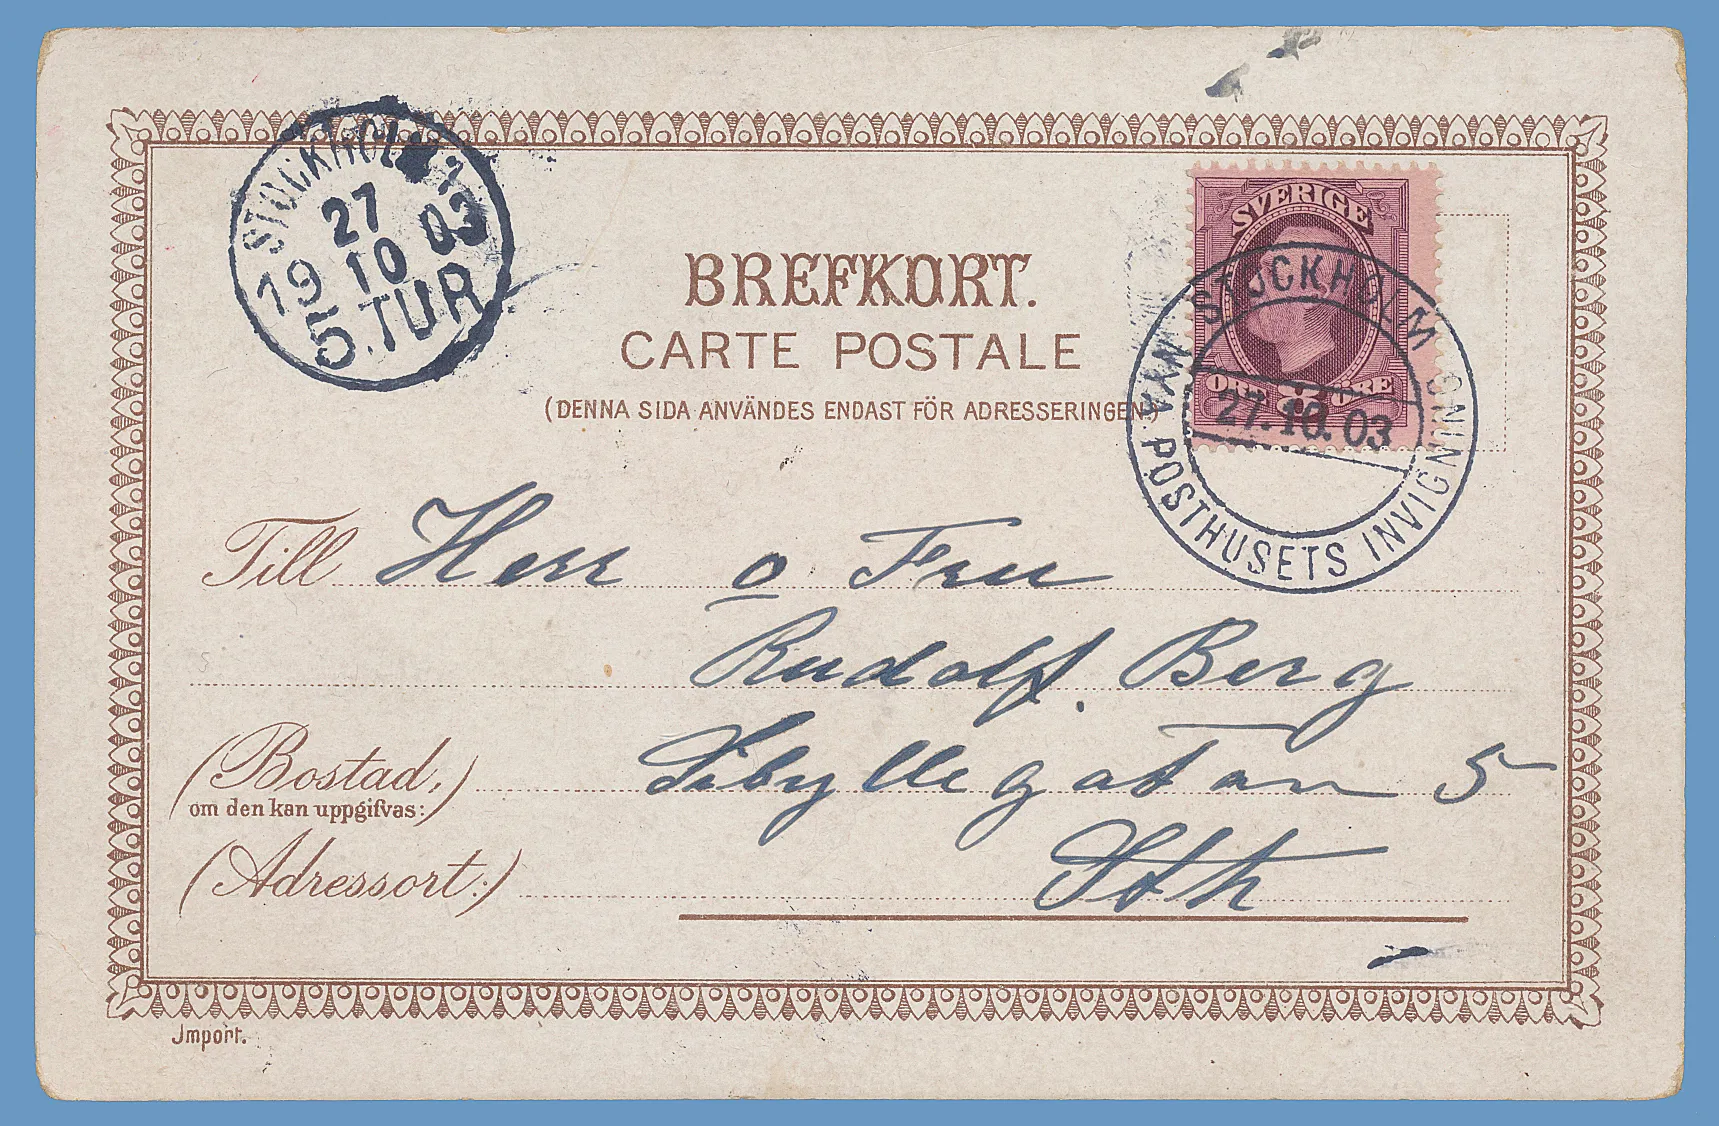 STOCKHOLM 1
27
19 10 03
5.TUR
SVERIGE
ÖRE 8 ÖRE
STOCKHOLM
27.10.03
NYA POSTHUSETS INVIGNING
BREFKORT.
CARTE POSTALE
(DENNA SIDA ANVÄNDES ENDAST FÖR ADRESSERINGEN)
Till Herr o Fru
Rudolf Berg
(Bostad, Sibyllegatan 5
om den kan uppgifvas:)
(Adressort:) Sthm
Import.